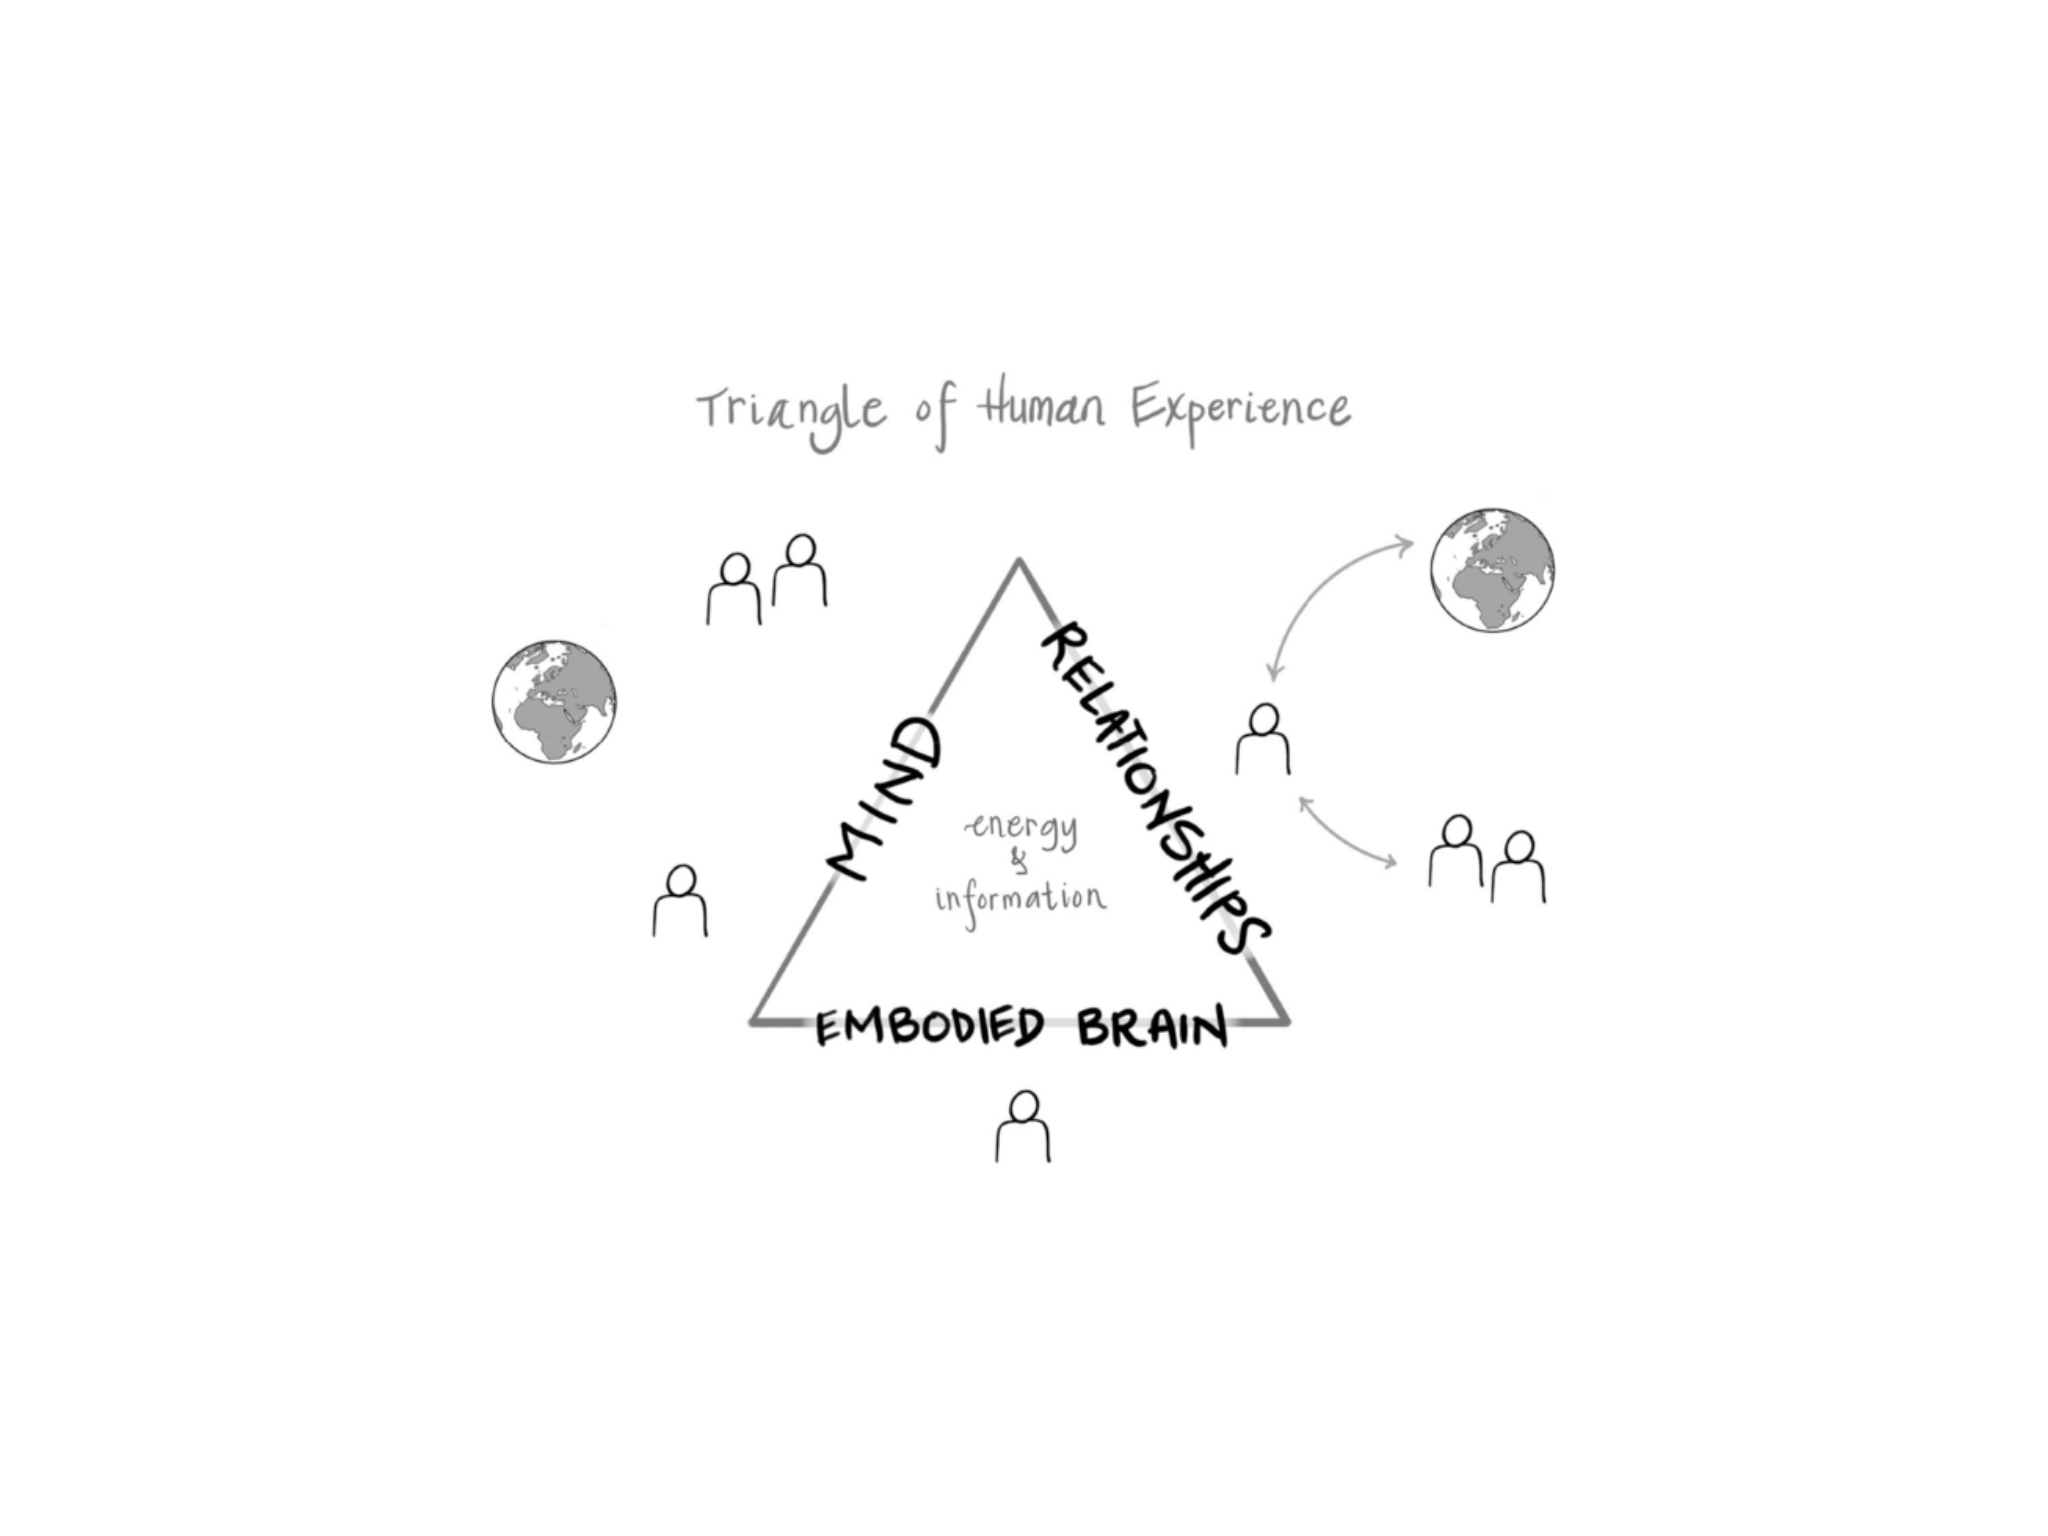 Triangle of Human Experience
MIND
RELATIONSHIPS
energy
&
information
EMBODIED BRAIN